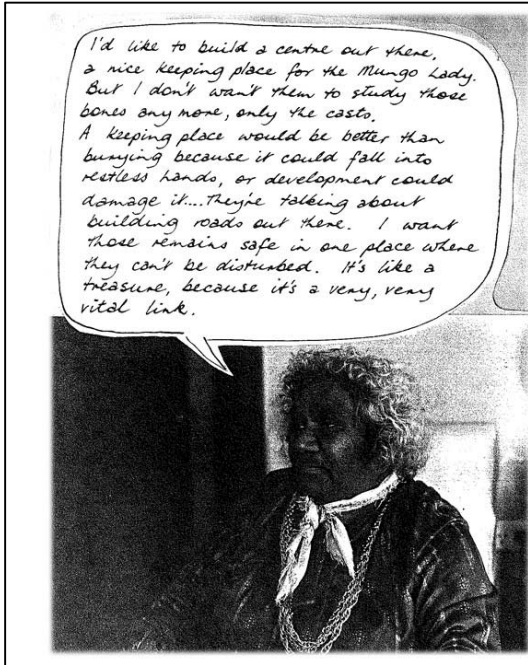 I'd like to build a centre out there,
a nice keeping place for the Mungo Lady.
But I don't want them to study those
bones any more, only the casts.
A keeping place would be better than
burying because it could fall into
restless hands, or development could
damage it....They're talking about
building roads out there. I want
those remains safe in one place where
they can't be disturbed. It's like a
treasure, because it's a very, very
vital link.